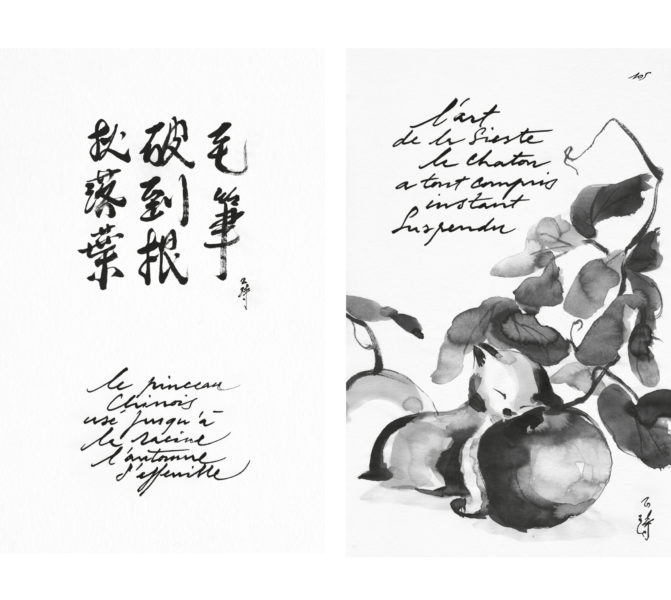 毛筆
破到根
秋落葉
le pinceau
Chinois
usé jusqu'à
la racine
l'automne
s'effeuille
l'art
de la Sieste
le chaton
a tout compris
instant
Suspendu